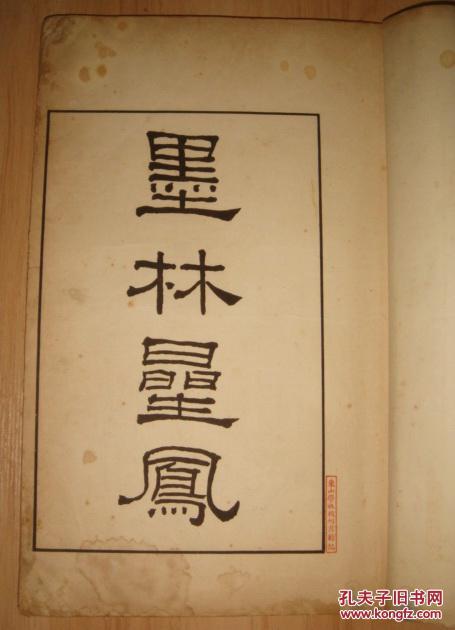 墨林星鳳
孔夫子旧书网
www.kongfz.com